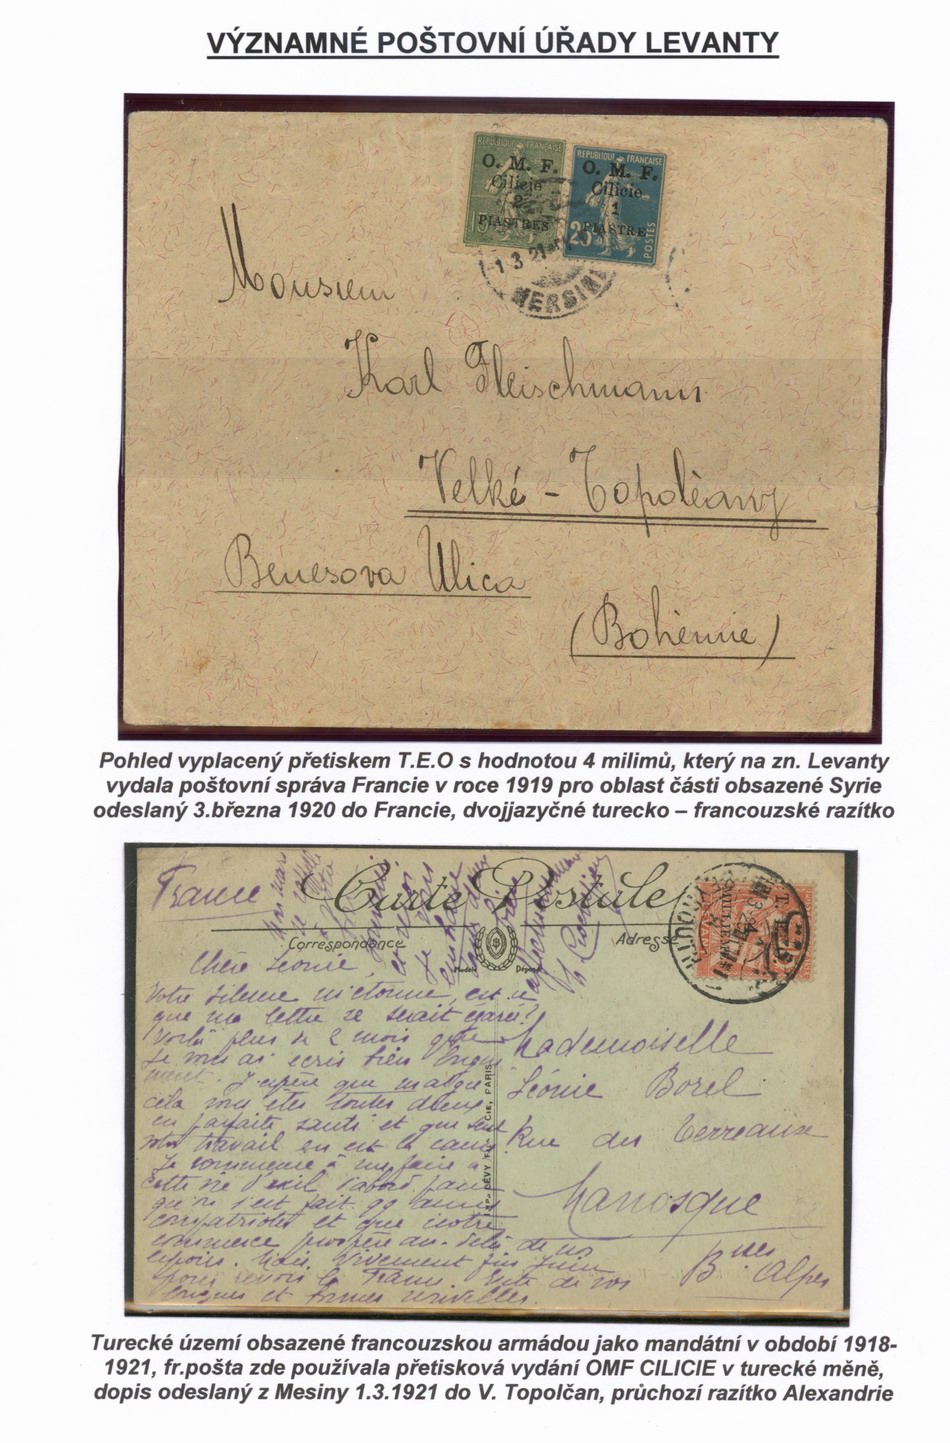 VÝZNAMNÉ POŠTOVNÍ ÚŘADY LEVANTY
REPUBLIQUE FRANÇAISE
O. M. F.
Cilicie
2
PIASTRES
15
REPUBLIQUE FRANÇAISE
O. M. F.
Cilicie
1
PIASTRE
25
POSTES
1 3 21
MERSINE
Monsieur
Karl Fleischmann
Velké - Topolčany
Benesova Ulica
(Bohême)
Pohled vyplacený přetiskem T.E.O s hodnotou 4 milimů, který na zn. Levanty
vydala poštovní správa Francie v roce 1919 pro oblast části obsazené Syrie
odeslaný 3.března 1920 do Francie, dvojjazyčné turecko – francouzské razítko
France
Carte Postale
Correspondance
Adresse
Chère Léonie,
Votre silence m'étonne, est-ce
que ma lettre se serait égarée?
Voilà plus de 2 mois que
je vous ai écrit bien longue
ment. J'espère que malgré
cela vous êtes toutes deux
en parfaite santé et que seul
votre travail en est la cause
Je commence à me faire à
cette vie d'exil
compatriotes et que notre
commerce prospère au-delà de nos
espoirs. Mais vivement fin Juin
pour revoir la France. de vos
longues et bonnes nouvelles.
Mademoiselle
Léonie Borel
Rue des Terreaux
Manosque
Bses Alpes
LÉVY FILS & CIE, PARIS
Turecké území obsazené francouzskou armádou jako mandátní v období 1918-
1921, fr.pošta zde používala přetisková vydání OMF CILICIE v turecké měně,
dopis odeslaný z Mesiny 1.3.1921 do V. Topolčan, průchozí razítko Alexandrie